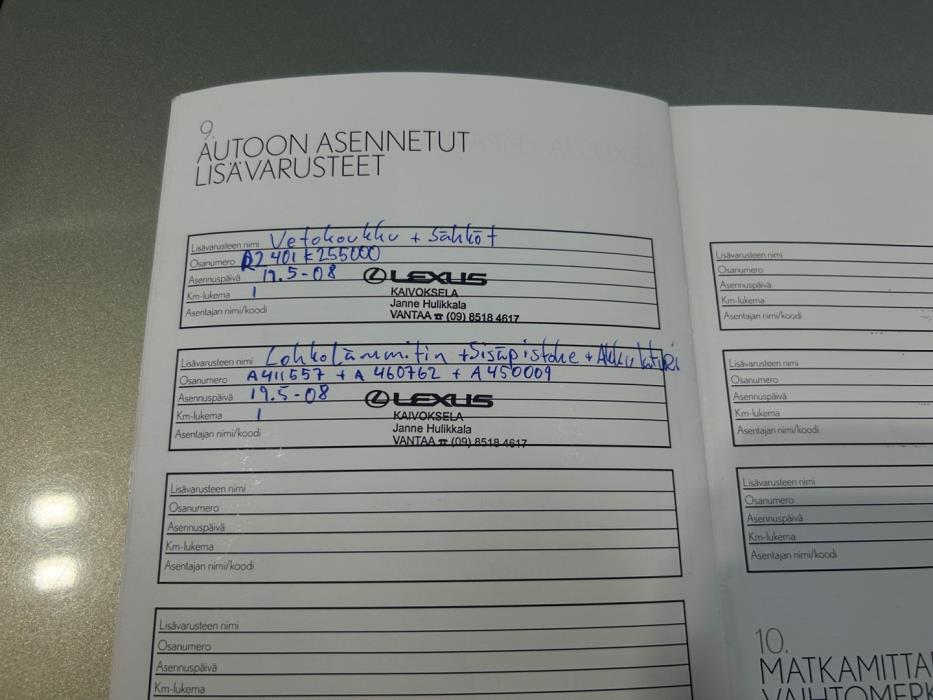 9.
AUTOON ASENNETUT
LISÄVARUSTEET
Lisävarusteen nimi Vetokoukku + Sähköt
Osanumero 2401K255000
Asennuspäivä 19.5-08
LEXUS
Km-lukema 1
KAIVOKSELA
Janne Hulikkala
Asentajan nimi/koodi
VANTAA ☎ (09) 8518 4617
Lisävarusteen nimi Lohkolämmitin + Sisäpistoke + Akku
Osanumero A411557 + A 460762 + A 450009
Asennuspäivä 19.5-08
LEXUS
Km-lukema 1
KAIVOKSELA
Janne Hulikkala
Asentajan nimi/koodi
VANTAA ☎ (09) 8518 4617
Lisävarusteen nimi
Osanumero
Asennuspäivä
Km-lukema
Asentajan nimi/koodi
Lisävarusteen nimi
Osanumero
Asennuspäivä
Km-lukema
Lisävarusteen nimi
Osanumero
Asennuspäivä
Km-lukema
Asentajan nimi/koodi
Lisävarusteen nimi
Osanumero
Asennuspäivä
Km-lukema
Asentajan nimi/koodi
Lisävarusteen nimi
Osanumero
Asennuspäivä
Km-lukema
Asentajan nimi/koodi
10.
MATKAMITTA
VAIHTOMERK